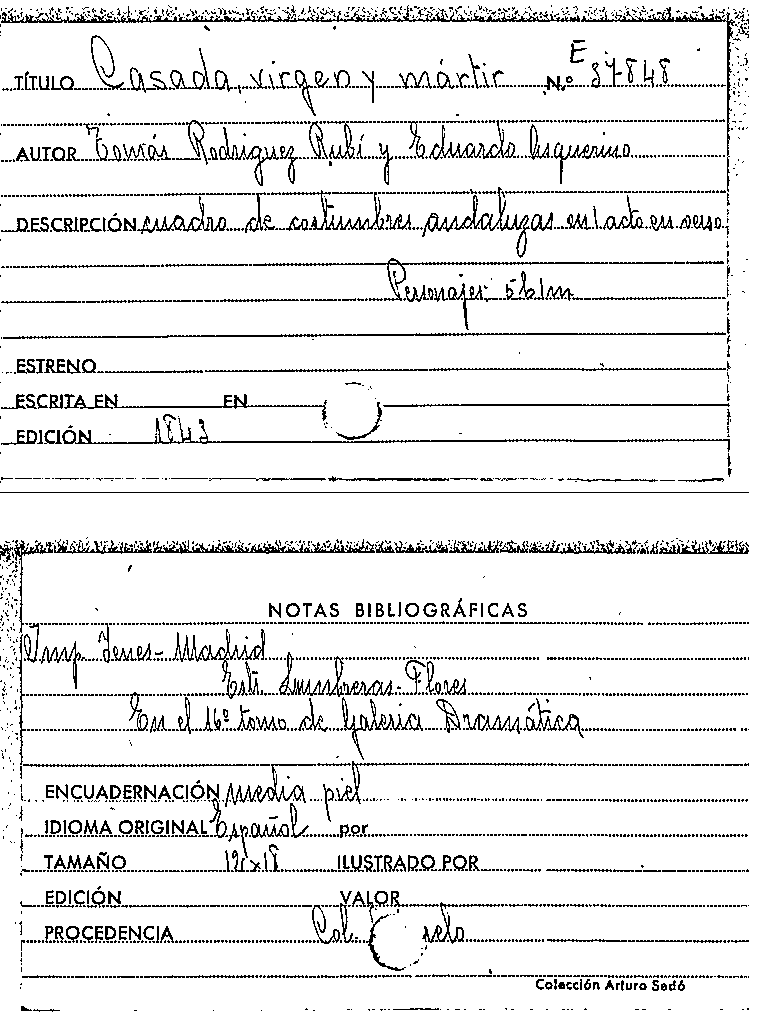 TÍTULO Casada, virgen y mártir N.º E 37848
AUTOR Tomás Rodriguez Rubí y Eduardo Asquerino
DESCRIPCIÓN cuadro de costumbres andaluzas en 1 acto en verso
Personajes: 5h 1m
ESTRENO
ESCRITA EN EN
EDICIÓN 1843
NOTAS BIBLIOGRÁFICAS
Imp Yenes - Madrid
Lumbreras - Flores
En el 16º tomo de Galeria Dramática
ENCUADERNACIÓN media piel
IDIOMA ORIGINAL Español por
TAMAÑO ILUSTRADO POR
EDICIÓN VALOR
PROCEDENCIA Col.
Colección Arturo Sedó